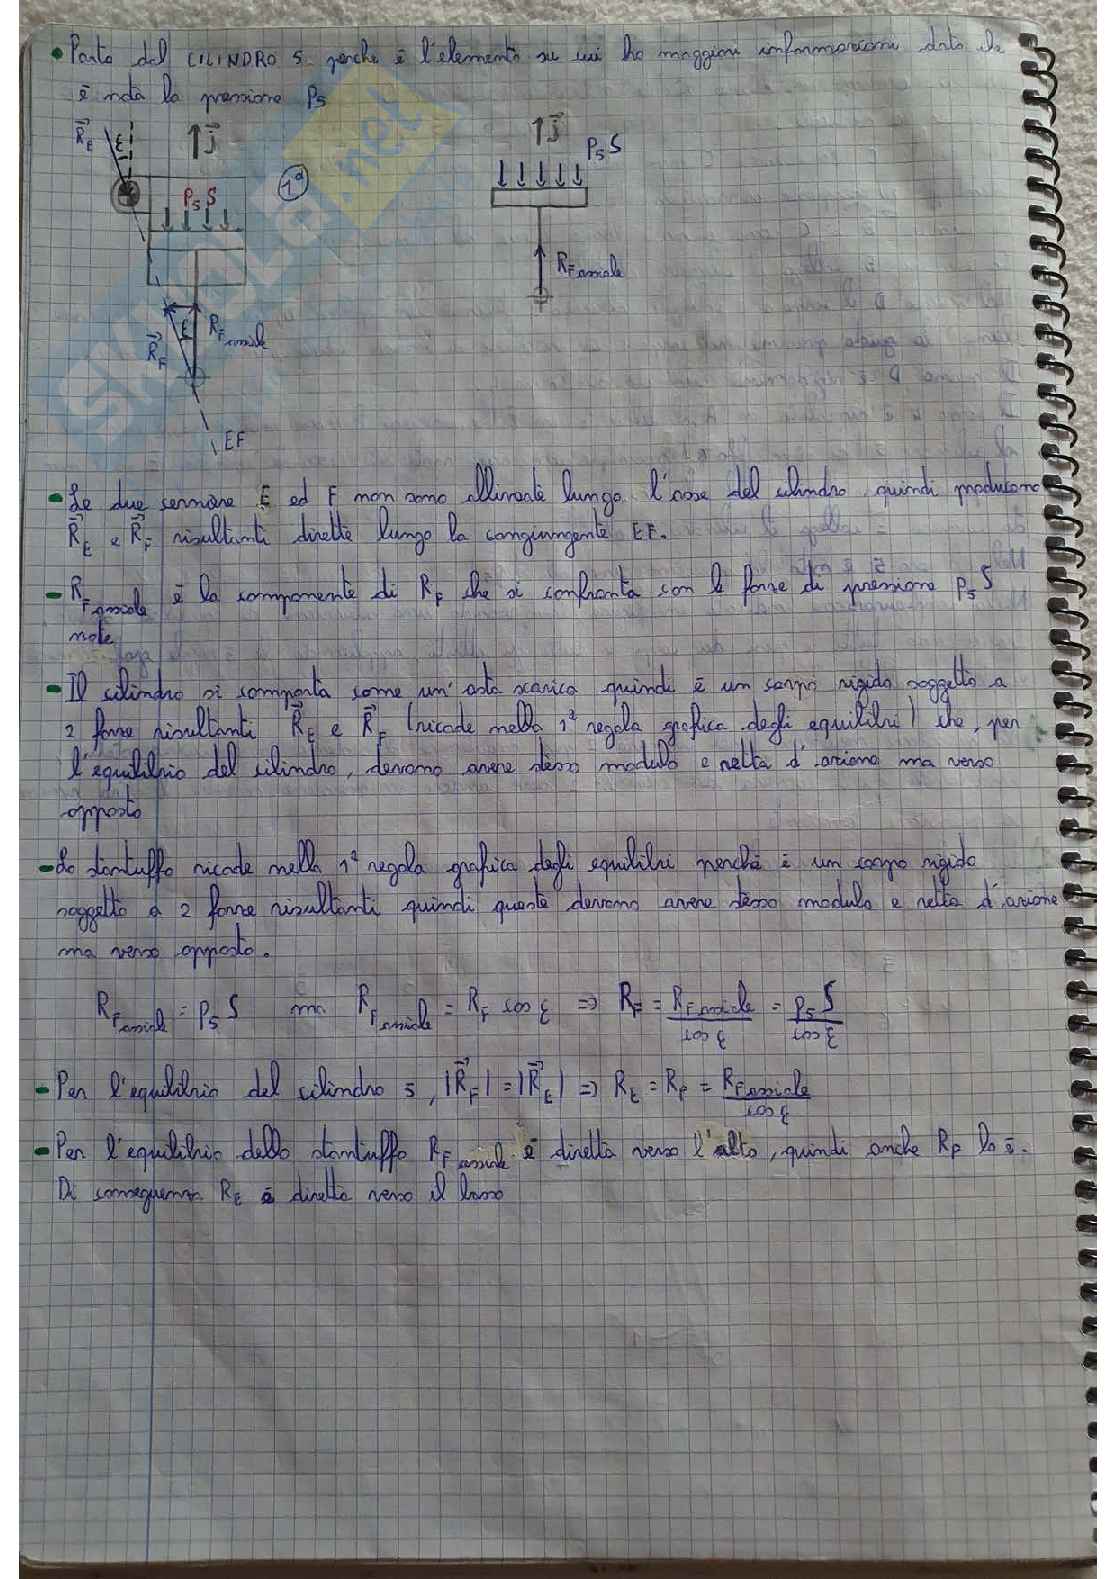 • Parto dal CILINDRO 5 perchè è l'elemento su cui ho maggiori informazioni dato che
è nota la pressione P5
R_E ε j 1ª P5 S
j P5 S
R_F assiale
ε R_F R_F assiale
EF
- Le due cerniere E ed F non sono allineate lungo l'asse del cilindro, quindi producono
R_E e R_F risultanti dirette lungo la congiungente EF.
- R_F assiale è la componente di R_F che si confronta con le forze di pressione P5 S
note
- Il cilindro si comporta come un'asta scarica quindi è un corpo rigido soggetto a
2 forze risultanti R_E e R_F (ricade nella 1ª regola grafica degli equilibri) che, per
l'equilibrio del cilindro, devono avere stesso modulo e retta d'azione ma verso
opposto
- Lo stantuffo ricade nella 1ª regola grafica degli equilibri perchè è un corpo rigido
soggetto a 2 forze risultanti quindi queste devono avere stesso modulo e retta d'azione
ma verso opposto.
R_F assiale = P5 S ma R_F assiale = R_F cos ε => R_F = R_F assiale / cos ε = P5 S / cos ε
- Per l'equilibrio del cilindro 5, |R_F| = |R_E| => R_E = R_F = R_F assiale / cos ε
- Per l'equilibrio dello stantuffo R_F assiale è diretta verso l'alto, quindi anche R_F lo è.
Di conseguenza R_E è diretta verso il basso
SKUOLA.net